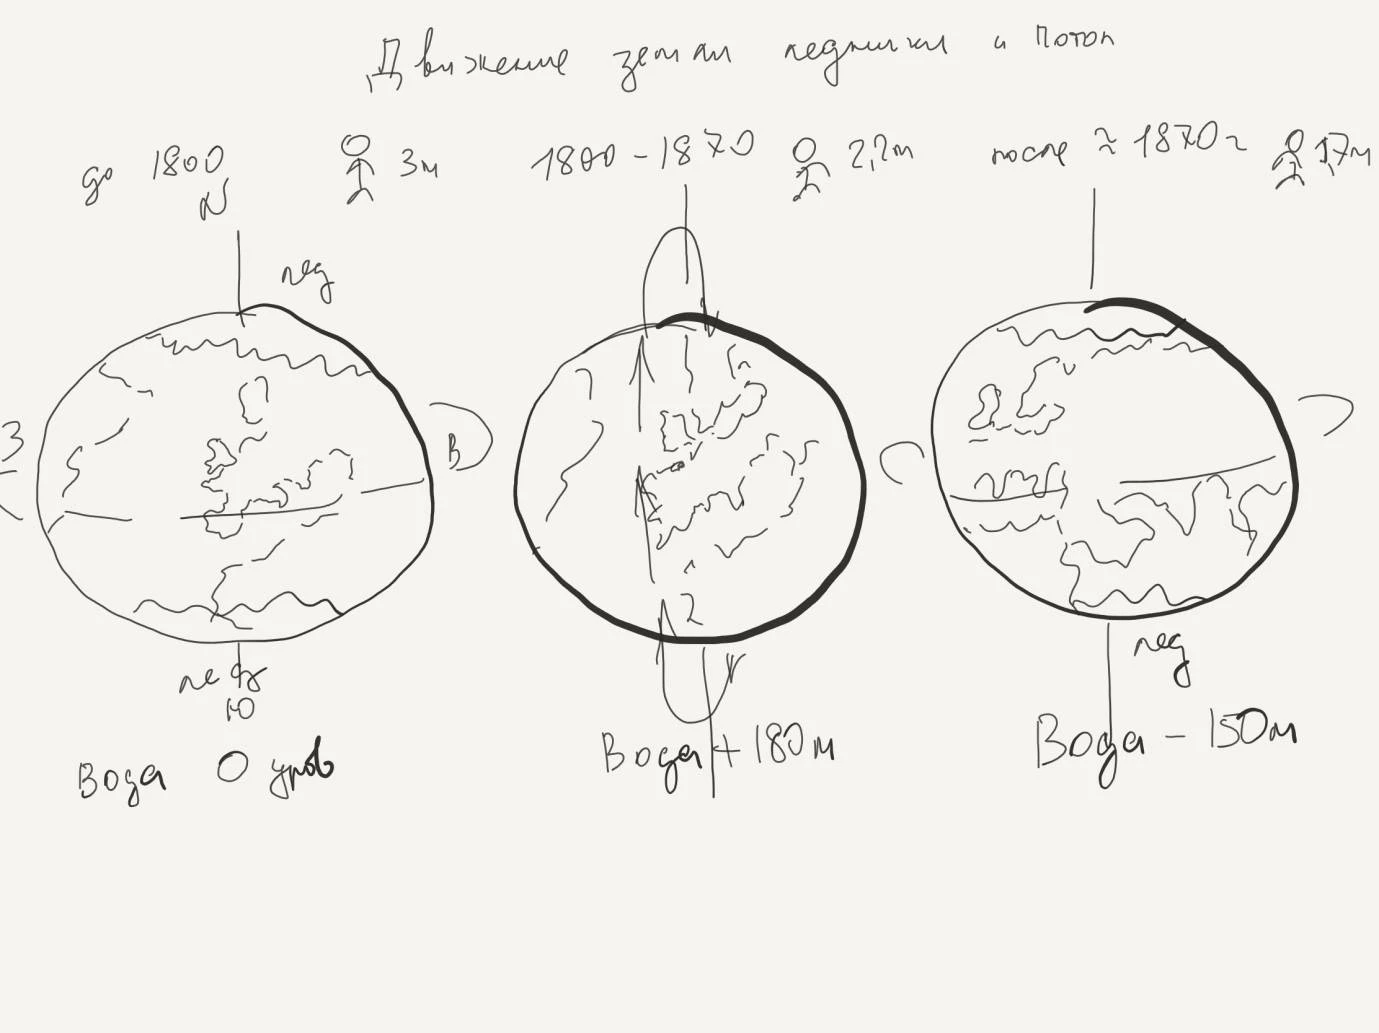 Движение земли ледники и Потоп
до 1800 3м 1800 - 1870 2,2м после ≈ 1870г 1,7м
N
лед
З В
2
лед
Ю
лед
Вода 0 уров Вода + 180м Вода - 150м